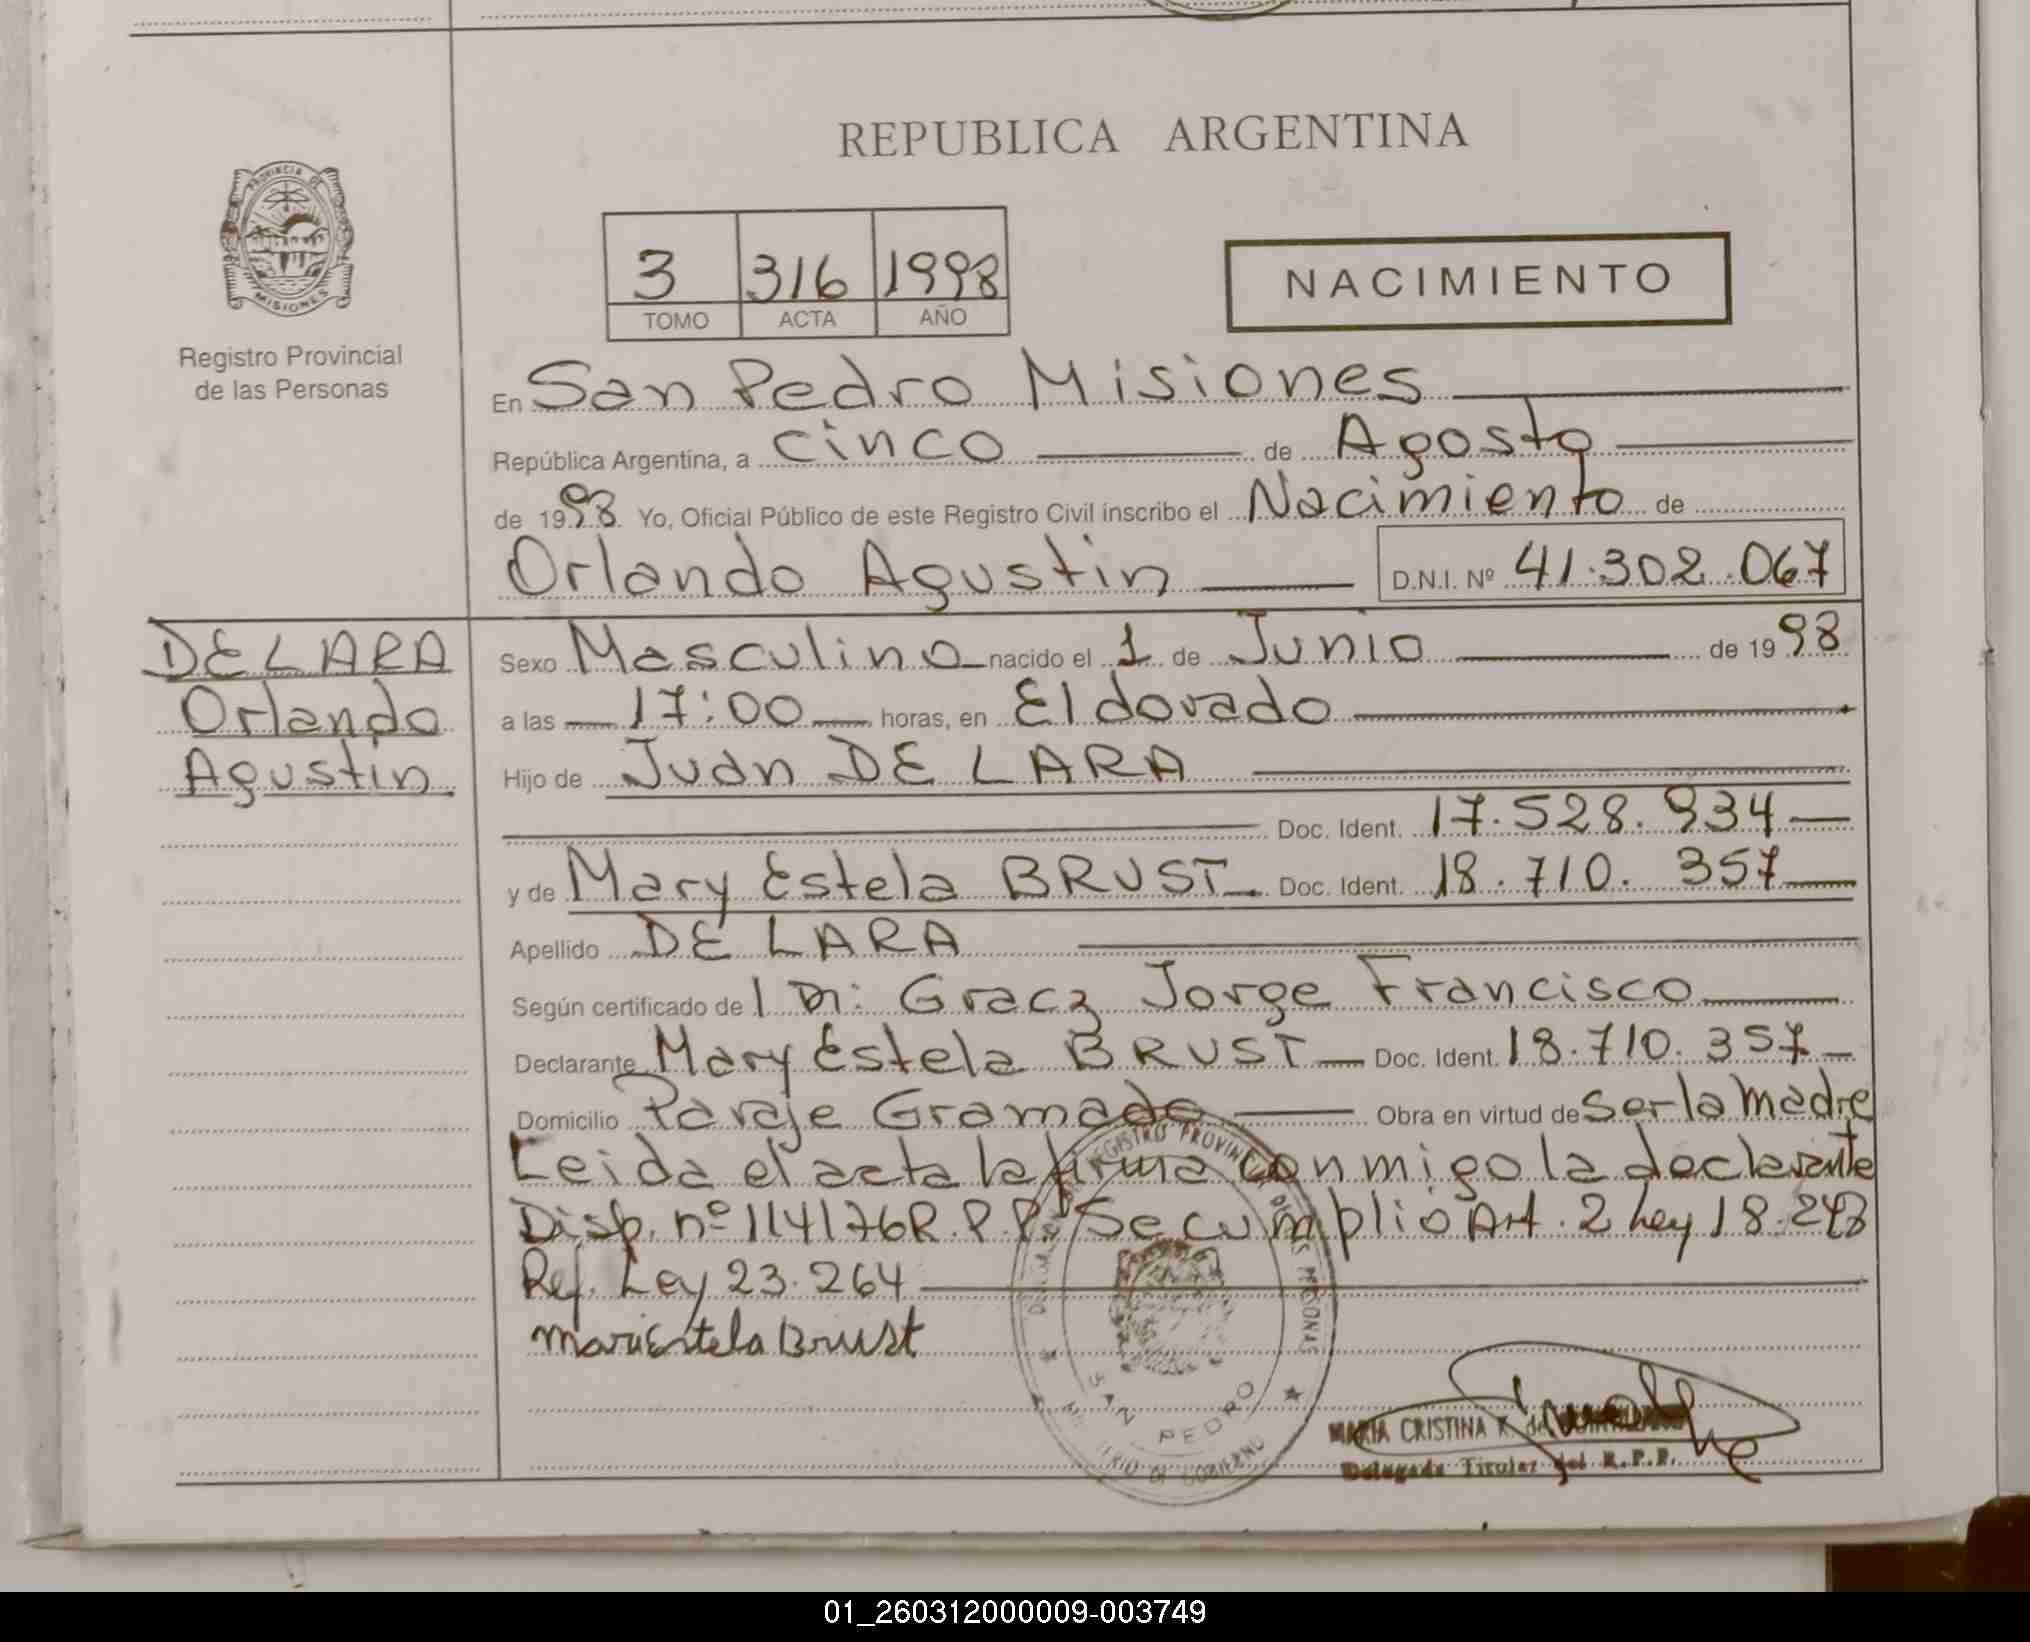 REPUBLICA ARGENTINA
PROVINCIA DE
MISIONES
Registro Provincial
de las Personas
3 316 1998
TOMO ACTA AÑO
NACIMIENTO
En San Pedro Misiones
República Argentina, a cinco de Agosto
de 1998 Yo, Oficial Público de este Registro Civil inscribo el Nacimiento de
Orlando Agustin D.N.I. Nº 41.302.067
DE LARA
Orlando
Agustin
Sexo Masculino nacido el 1 de Junio de 1998
a las 17:00 horas, en Eldorado
Hijo de Juan DE LARA
Doc. Ident. 17.528.934
y de Mary Estela BRUST Doc. Ident. 18.710.357
Apellido DE LARA
Según certificado de Gracz Jorge Francisco
Declarante Mary Estela BRUST Doc. Ident. 18.710.357
Domicilio Paraje Gramado Obra en virtud de ser la madre
Leida el acta la firma conmigo la declarante
Disp. nº 114176 R.P.P. Se cumplió Art. 2 Ley 18.248
Ref. Ley 23.264
Mari Estela Brust
REGISTRO PROVINCIAL DE LAS PERSONAS
SAN PEDRO
MINISTERIO DE GOBIERNO
MARIA CRISTINA R. de
Delegada Titular del R.P.P.
01_260312000009-003749